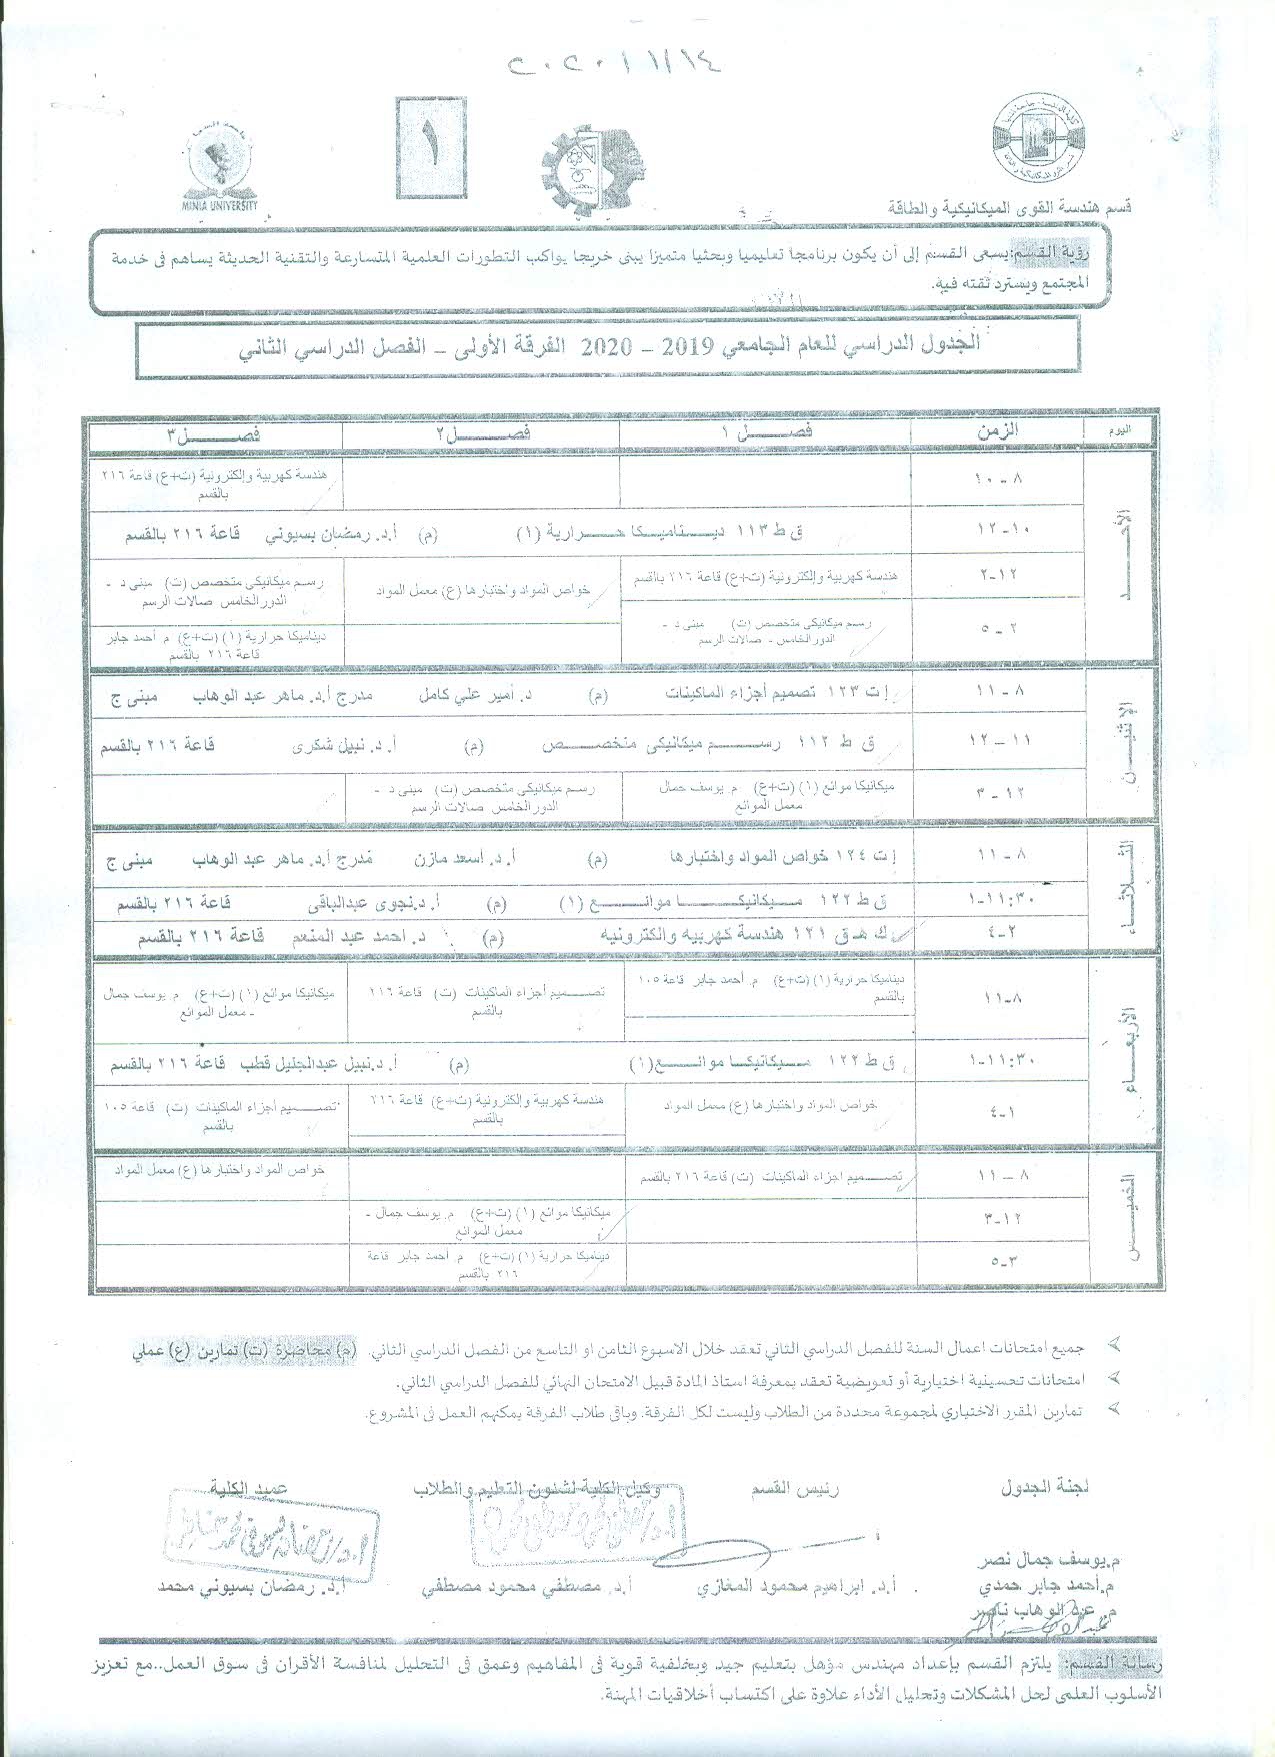 ٢٠٢٠/١/١٤
١
MINIA UNIVERSITY
قسم هندسة القوى الميكانيكية والطاقة
رؤية القسم: يسعى القسم إلى أن يكون برنامجا تعليميا وبحثيا متميزا يبنى خريجا يواكب التطورات العلمية المتسارعة والتقنية الحديثة يساهم فى خدمة
المجتمع ويسترد ثقته فيه.
الجدول الدراسي للعام الجامعي 2019 – 2020 الفرقة الأولى – الفصل الدراسي الثاني
اليوم الزمن فصل ١ فصل ٢ فصل ٣
الأحد
٨-١٠ هندسة كهربية وإلكترونية (ت+ع) قاعة ٢١٦
بالقسم
١٠-١٢ ق ط ١١٣ ديناميكا حرارية (١) (م) أ.د. رمضان بسيوني قاعة ٢١٦ بالقسم
١٢-٢ هندسة كهربية وإلكترونية (ت+ع) قاعة ٢١٦ بالقسم
خواص المواد واختبارها (ع) معمل المواد
رسم ميكانيكى متخصص (ت) مبنى د -
الدور الخامس صالات الرسم
٢-٥ رسم ميكانيكى متخصص (ت) مبنى د -
الدور الخامس - صالات الرسم
ديناميكا حرارية (١) (ت+ع) م. أحمد جابر
قاعة ٢١٦ بالقسم
الإثنين
٨-١١ إ ت ١٢٣ تصميم أجزاء الماكينات (م) د. أمير علي كامل مدرج أ.د. ماهر عبد الوهاب مبنى ج
١١-١٢ ق ط ١١٢ رسم ميكانيكى متخصص (م) أ.د. نبيل شكرى قاعة ٢١٦ بالقسم
١٢-٣ ميكانيكا موائع (١) (ت+ع) م. يوسف جمال
معمل الموائع
رسم ميكانيكى متخصص (ت) مبنى د -
الدور الخامس صالات الرسم
الثلاثاء
٨-١١ إ ت ١٢٤ خواص المواد واختبارها (م) أ.د. أسعد مازن مدرج أ.د. ماهر عبد الوهاب مبنى ج
١١:٣٠-١ ق ط ١٢٢ ميكانيكا موائع (١) (م) أ.د. نجوى عبدالباقى قاعة ٢١٦ بالقسم
٢-٤ ك هـ ق ١٢١ هندسة كهربية والكترونية (م) د. احمد عبد المنعم قاعة ٢١٦ بالقسم
الأربعاء
٨-١١ ديناميكا حرارية (١) (ت+ع) م. أحمد جابر قاعة ١٠٥
بالقسم
تصميم أجزاء الماكينات (ت) قاعة ٢١٦
بالقسم
ميكانيكا موائع (١) (ت+ع) م. يوسف جمال
- معمل الموائع
١١:٣٠-١ ق ط ١٢٢ ميكانيكا موائع (١) (م) أ.د. نبيل عبدالجليل قطب قاعة ٢١٦ بالقسم
١-٤ خواص المواد واختبارها (ع) معمل المواد
هندسة كهربية وإلكترونية (ت+ع) قاعة ٢١٦
بالقسم
تصميم أجزاء الماكينات (ت) قاعة ١٠٥
بالقسم
الخميس
٨-١١ تصميم اجزاء الماكينات (ت) قاعة ٢١٦ بالقسم
خواص المواد واختبارها (ع) معمل المواد
١٢-٣ ميكانيكا موائع (١) (ت+ع) م. يوسف جمال -
معمل الموائع
٣-٥ ديناميكا حرارية (١) (ت+ع) م. أحمد جابر قاعة
٢١٦ بالقسم
جميع امتحانات اعمال السنة للفصل الدراسي الثاني تعقد خلال الاسبوع الثامن او التاسع من الفصل الدراسي الثاني. (م) محاضرة (ت) تمارين (ع) عملي
امتحانات تحسينية اختيارية أو تعويضية تعقد بمعرفة استاذ المادة قبيل الامتحان النهائي للفصل الدراسي الثاني.
تمارين المقرر الاختياري لمجموعة محددة من الطلاب وليست لكل الفرقة. وباقى طلاب الفرقة يمكنهم العمل فى المشروع.
لجنة الجدول رئيس القسم وكيل الكلية لشئون التعليم والطلاب عميد الكلية
م. يوسف جمال نصر
م. أحمد جابر حمدي أ.د. ابراهيم محمود المغازي أ.د. مصطفي محمود مصطفي أ.د. رمضان بسيوني محمد
م. عبد الوهاب ناصر
رسالة القسم: يلتزم القسم بإعداد مهندس مؤهل بتعليم جيد وبخلفية قوية فى المفاهيم وعمق فى التحليل لمنافسة الأقران فى سوق العمل..مع تعزيز
الأسلوب العلمى لحل المشكلات وتحليل الأداء علاوة على اكتساب أخلاقيات المهنة.